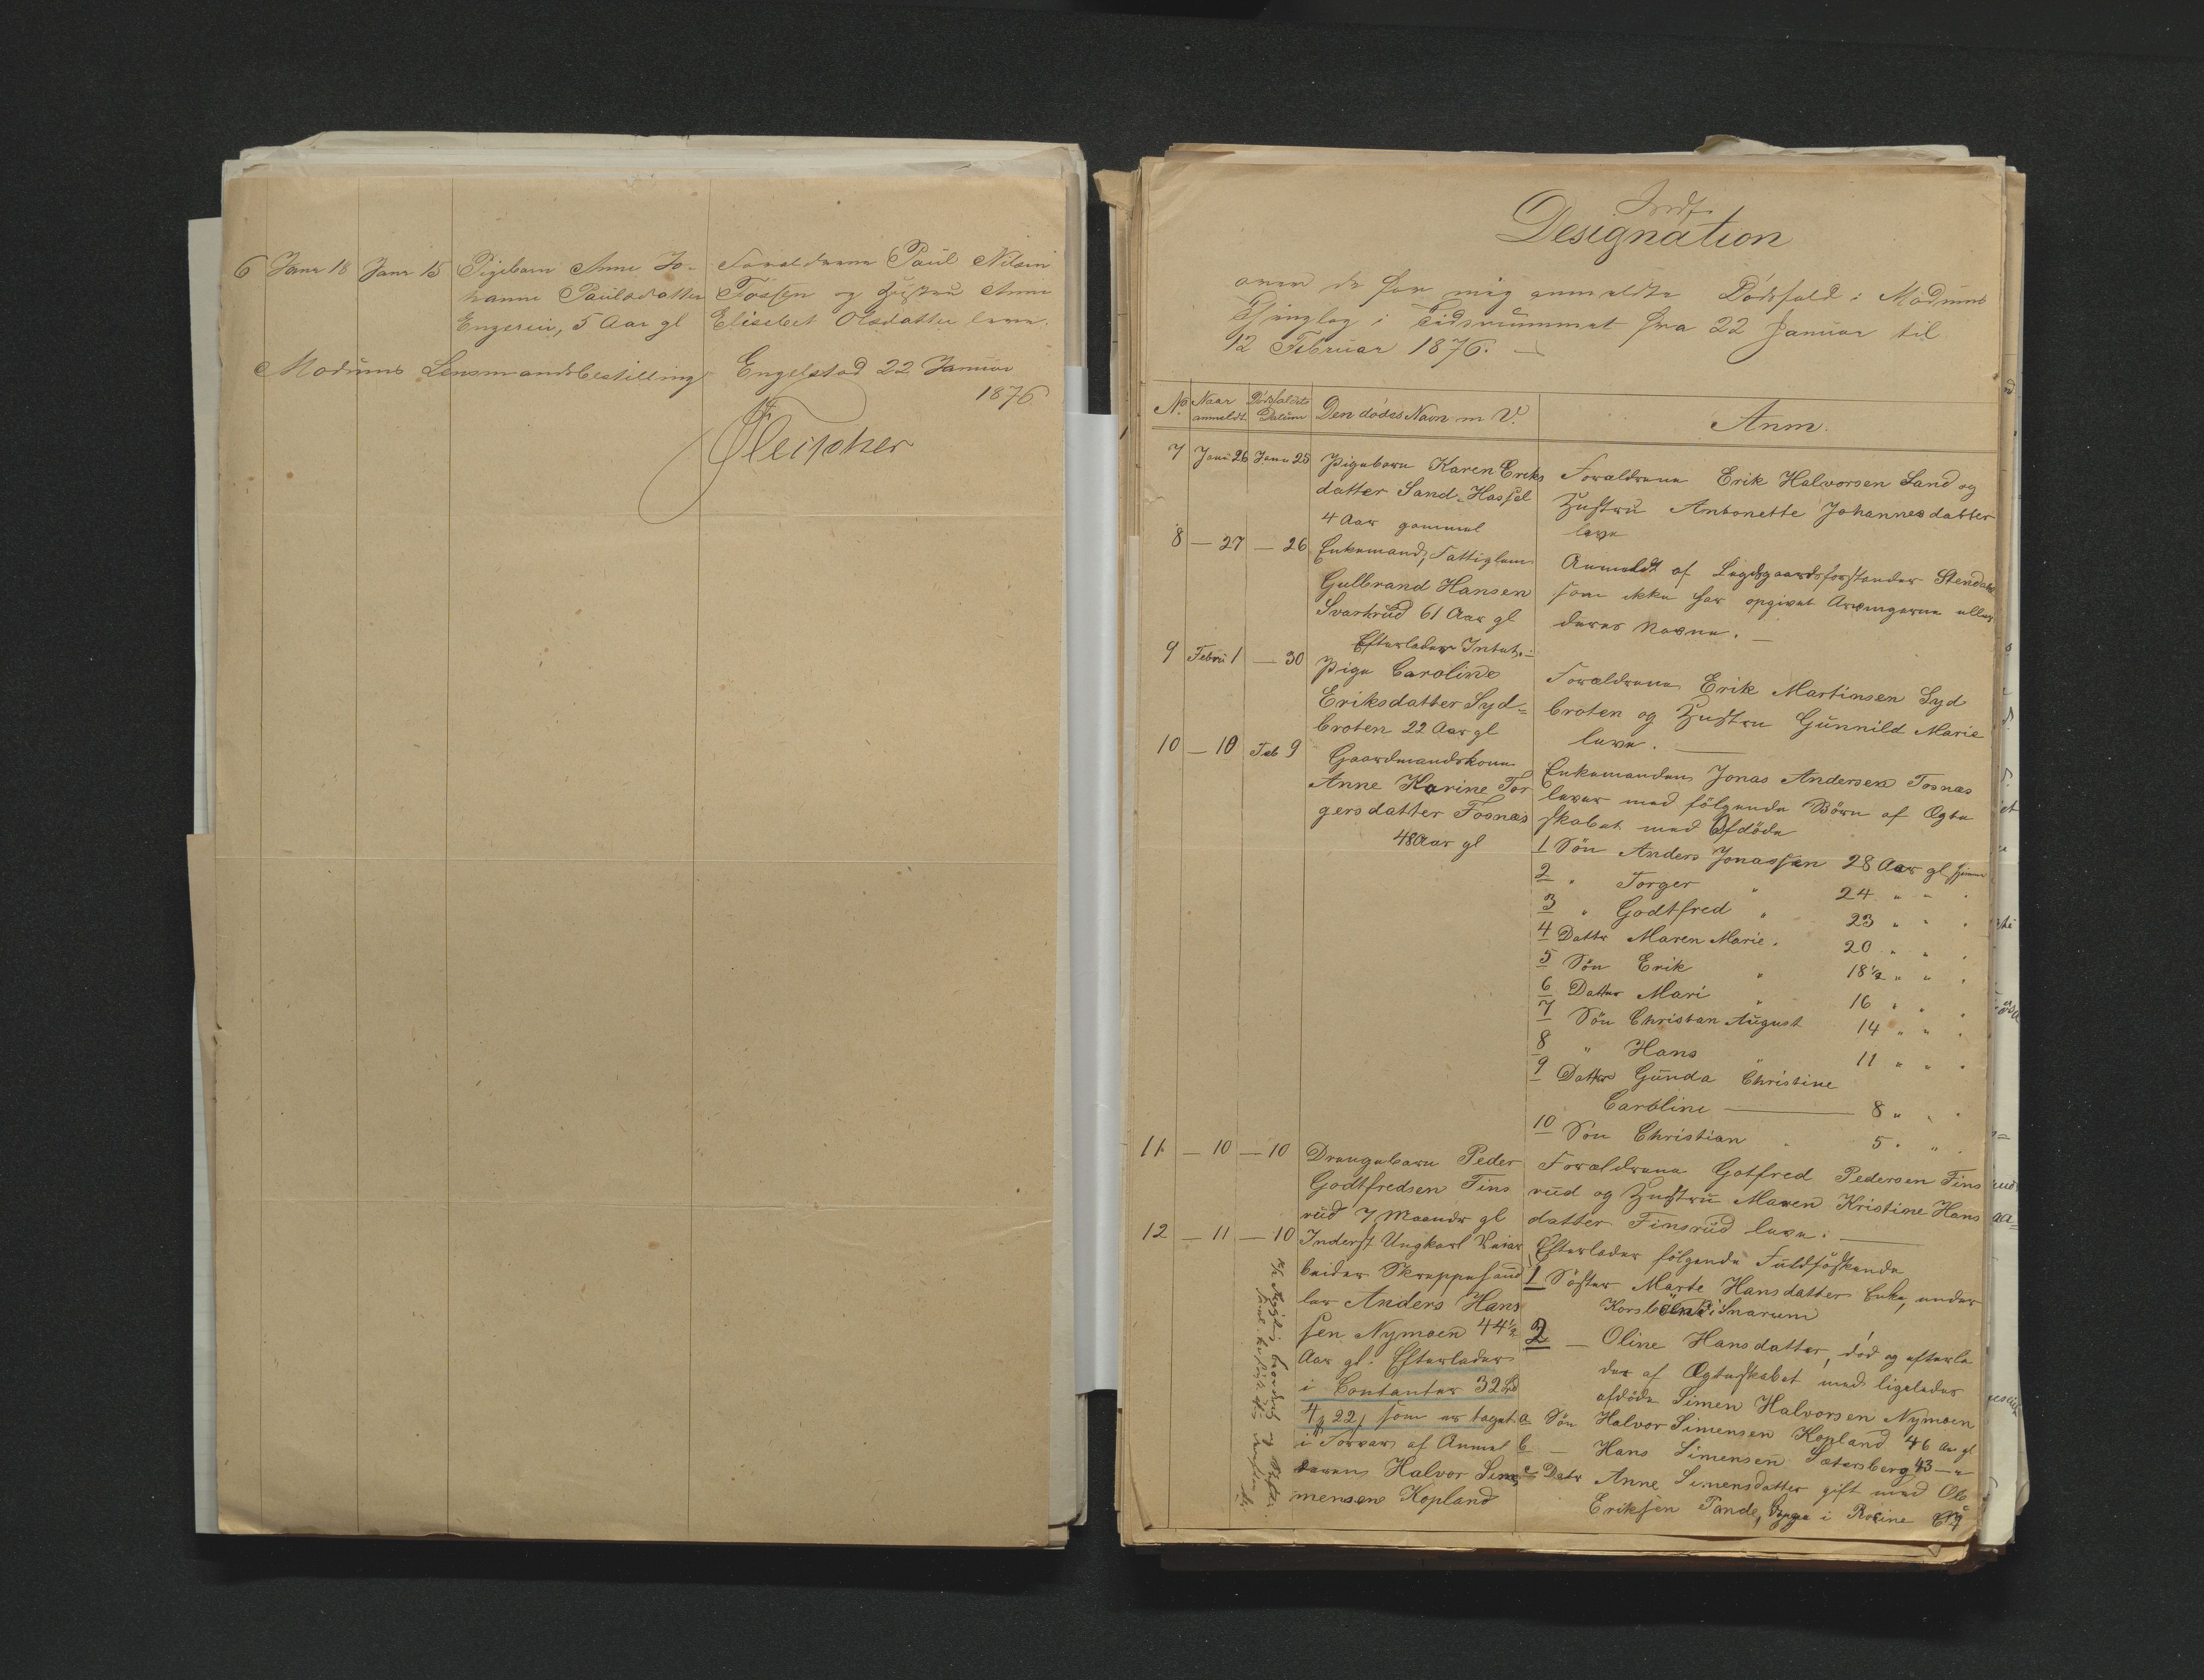 6 Janr 18 Janr 15 Pigebarn Anne Jo- Forældrene Paul Nilsen
hanne Paulsdatter Fossen og Hustru Anne
Engerin, 5 Aar gl Elisebet Olsdatter leve.
Modums Lensmandsbestilling Engelstad 22 Januar
1876
Fleischer
Indf.
Designation
over de for mig anmeldte Dödsfald i Modums
Thinglag i Tidsrummet fra 22 Januar til
12 Februar 1876. —
No Naar anmeldt. Dödsfaldets Datum Den dödes Navn m V. Anm.
7 Janu 26 Janu 25 Pigebarn Karen Eriks
datter Sand-Hassel
4 Aar gammel
Forældrene Erik Halvorsen Sand og
Hustru Antonette Johannesdatter
leve
8 — 27 — 26 Enkemand, Fattiglem
Gulbrand Hansen
Svartrud 61 Aar gl
Efterlader Intet.—
Anmeldt af Lægdsgaardsforstander Stendahl
som ikke har opgivet Arvingerne eller
deres Navne. —
9 Febru 1 — 30 Pige Caroline
Eriksdatter Syd=
broten 22 Aar gl
Forældrene Erik Martinsen Syd
broten og Hustru Gunnild Marie
leve. —
10 — 10 Feb 9 Gaardmandskone
Anne Karine Tor
gersdatter Fosnæs
48 Aar gl
Enkemanden Jonas Andersen Fosnæs
lever med fölgende Börn af Ægte
skabet med Afdöde
1 Sön Anders Jonassen 28 Aar gl hjemme
2 " Torger " 24 " " "
3 " Godtfred " 23 " " "
4 Dattr Maren Marie " 20 " " "
5 Sön Erik " 18½ " " "
6 Datter Mari " 16 " " "
7 Sön Christan August 14 " " "
8 " Hans " 11 " " "
9 Datter Gunda Christine
Caroline — 8 " " "
10 Sön Christian " 5 " " "
11 — 10 — 10 Drengebarn Peder
Godtfredsen Fins
rud 7 Maander gl
Forældrene Gotfred Pedersen Fins
rud og Hustru Maren Kristine Hans
datter Finsrud leve. —
12 — 11 — 10 Inderst Ungkarl Veiar
beider Skreppehand
ler Anders Hans
sen Nymoen 44½
Aar gl. Efterlader
i Contanter 32 Spd
4 22 som er taget
i Forvar af Anmel
deren Halvor Si
mensen Kopland
Efterlader fölgende Fuldsöskende
1 Söster Marte Hansdatter Enke, under
i Snarum
2 — Oline Hansdatter, död og efterla
der af Ægteskabet med ligeledes
afdöde Simen Halvorsen Nymoen
a Sön Halvor Simensen Kopland 46 Aar gl
b — Hans Simensen Sætersberg 43 — "
c Datr Anne Simensdatter gift med Ole
Eriksen Tande, i